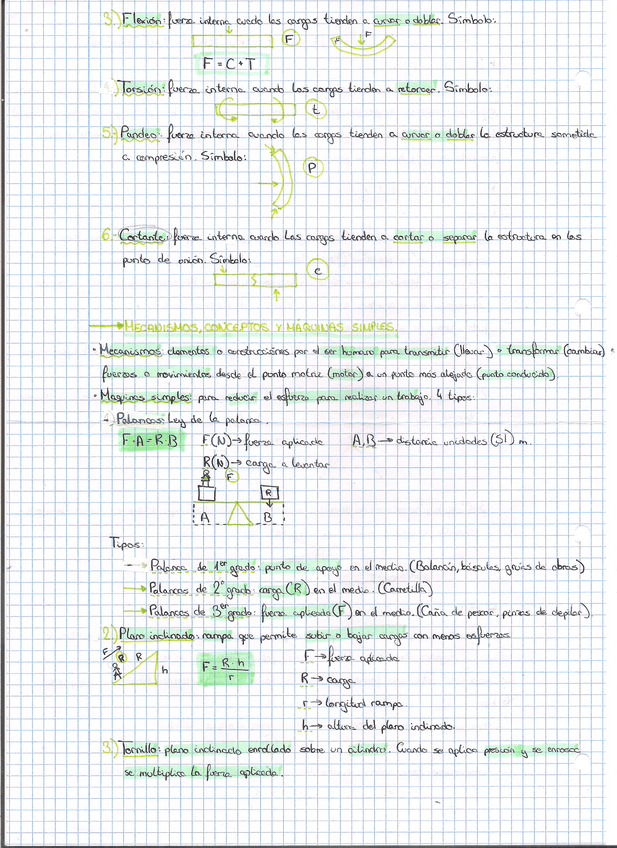 3.) Flexión: fuerza interna cuando las cargas tienden a curvar o doblar. Símbolo:
F F F
F = C + T
4.) Torsión: fuerza interna cuando las cargas tienden a retorcer. Símbolo:
t
5.) Pandeo: fuerza interna cuando las cargas tienden a curvar o doblar la estructura sometida
a compresión. Símbolo:
P
6.- Cortante: fuerza interna cuando las cargas tienden a cortar o separar la estructura en los
punto de unión. Símbolo:
c
MECANISMOS, CONCEPTOS Y MÁQUINAS SIMPLES.
· Mecanismos: elementos o construcciones por el ser humano para transmitir (llevar) o transformar (cambiar)
fuerzas o movimientos desde el punto motriz (motor) a un punto más alejado (punto conducido)
· Maquinas simples: para reducir el esfuerzo para realizar un trabajo. 4 tipos:
Palancas: Ley de la palanca.
F·A = R·B F(N) → fuerza aplicada A,B → distancia unidades (SI) m.
R(N) → carga a levantar
F R
A B
Tipos:
→ Palanca de 1er grado: punto de apoyo en el medio. (Balancín, básculas, grúas de obras)
→ Palancas de 2º grado: carga (R) en el medio. (Carretilla)
→ Palancas de 3er grado: fuerza aplicada (F) en el medio. (Caña de pescar, pinzas de depilar).
2.) Plano inclinado: rampa que permite subir o bajar cargas con menos esfuerzos
F R R h F = R·h / r F → fuerza aplicada
R → carga
r → longitud rampa.
h → altura del plano inclinado.
3.) Tornillo: plano inclinado enrollado sobre un cilindro. Cuando se aplica presión y se enrosca
se multiplica la fuerza aplicada.